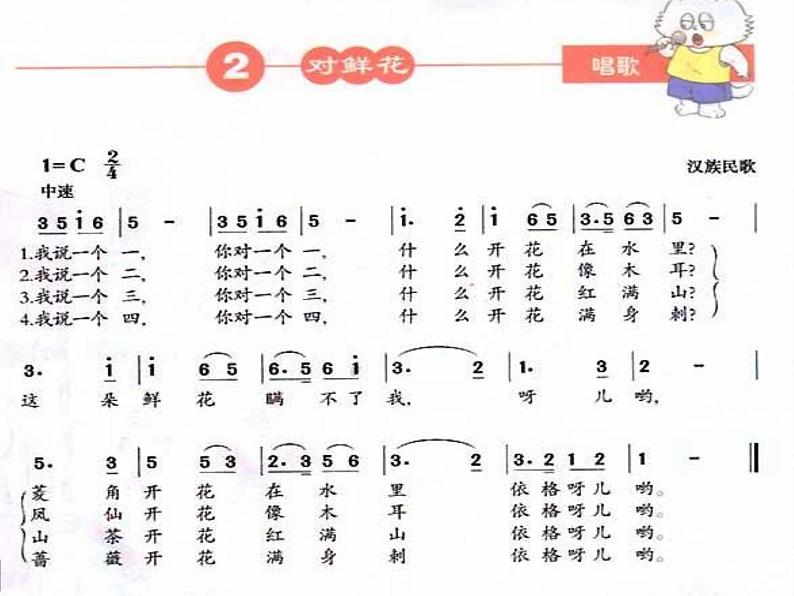 2 对鲜花 唱歌
1=C 2/4
汉族民歌
中速
3 5 i 6 | 5 - | 3 5 i 6 | 5 - | i· 2̇ | i 6 5 | 3·5 6 3 | 5 - |
1.我说一个 一, 你对一个 一, 什 么 开 花 在 水 里?
2.我说一个 二, 你对一个 二, 什 么 开 花 像 木 耳?
3.我说一个 三, 你对一个 三, 什 么 开 花 红 满 山?
4.我说一个 四, 你对一个 四, 什 么 开 花 满 身 刺?
3· i | i 6 5 | 6·5 6 i | 3· 2 | 1· 3 | 2 - |
这 朵 鲜 花 瞒 不 了 我, 呀 儿 哟,
5· 3 | 5 5 3 | 2·3 5 | 3· 2 | 3·2 1 2 | 1 - ‖
菱 角 开 花 在 水 里 依 格 呀 儿 哟。
凤 仙 开 花 像 木 耳 依 格 呀 儿 哟。
山 茶 开 花 红 满 山 依 格 呀 儿 哟。
蔷 薇 开 花 满 身 刺 依 格 呀 儿 哟。